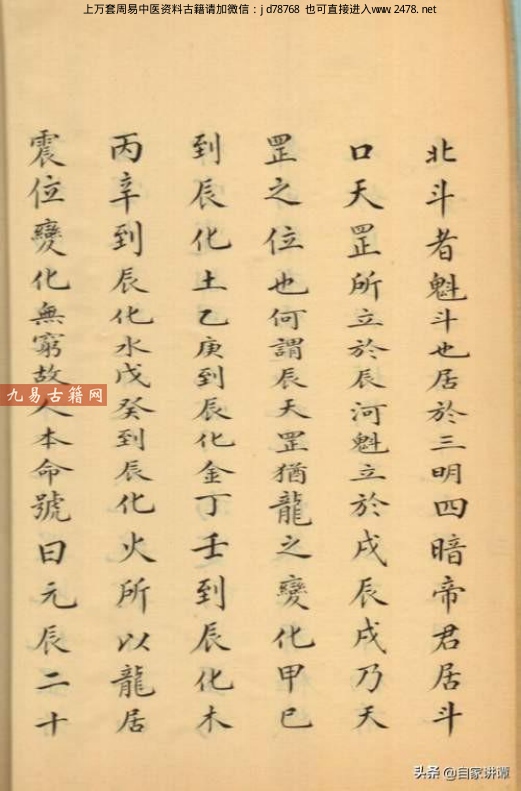 上万套周易中医资料古籍请加微信：jd78768 也可直接进入www.2478.net
北斗者魁斗也居於三明四暗帝君居斗
口天罡所立於辰河魁立於戌辰戌乃天
罡之位也何謂辰天罡猶龍之變化甲已
到辰化土乙庚到辰化金丁壬到辰化木
丙辛到辰化水戊癸到辰化火所以龍居
震位變化無窮故人本命號曰元辰二十
九易古籍网
头条 @自家讲谭